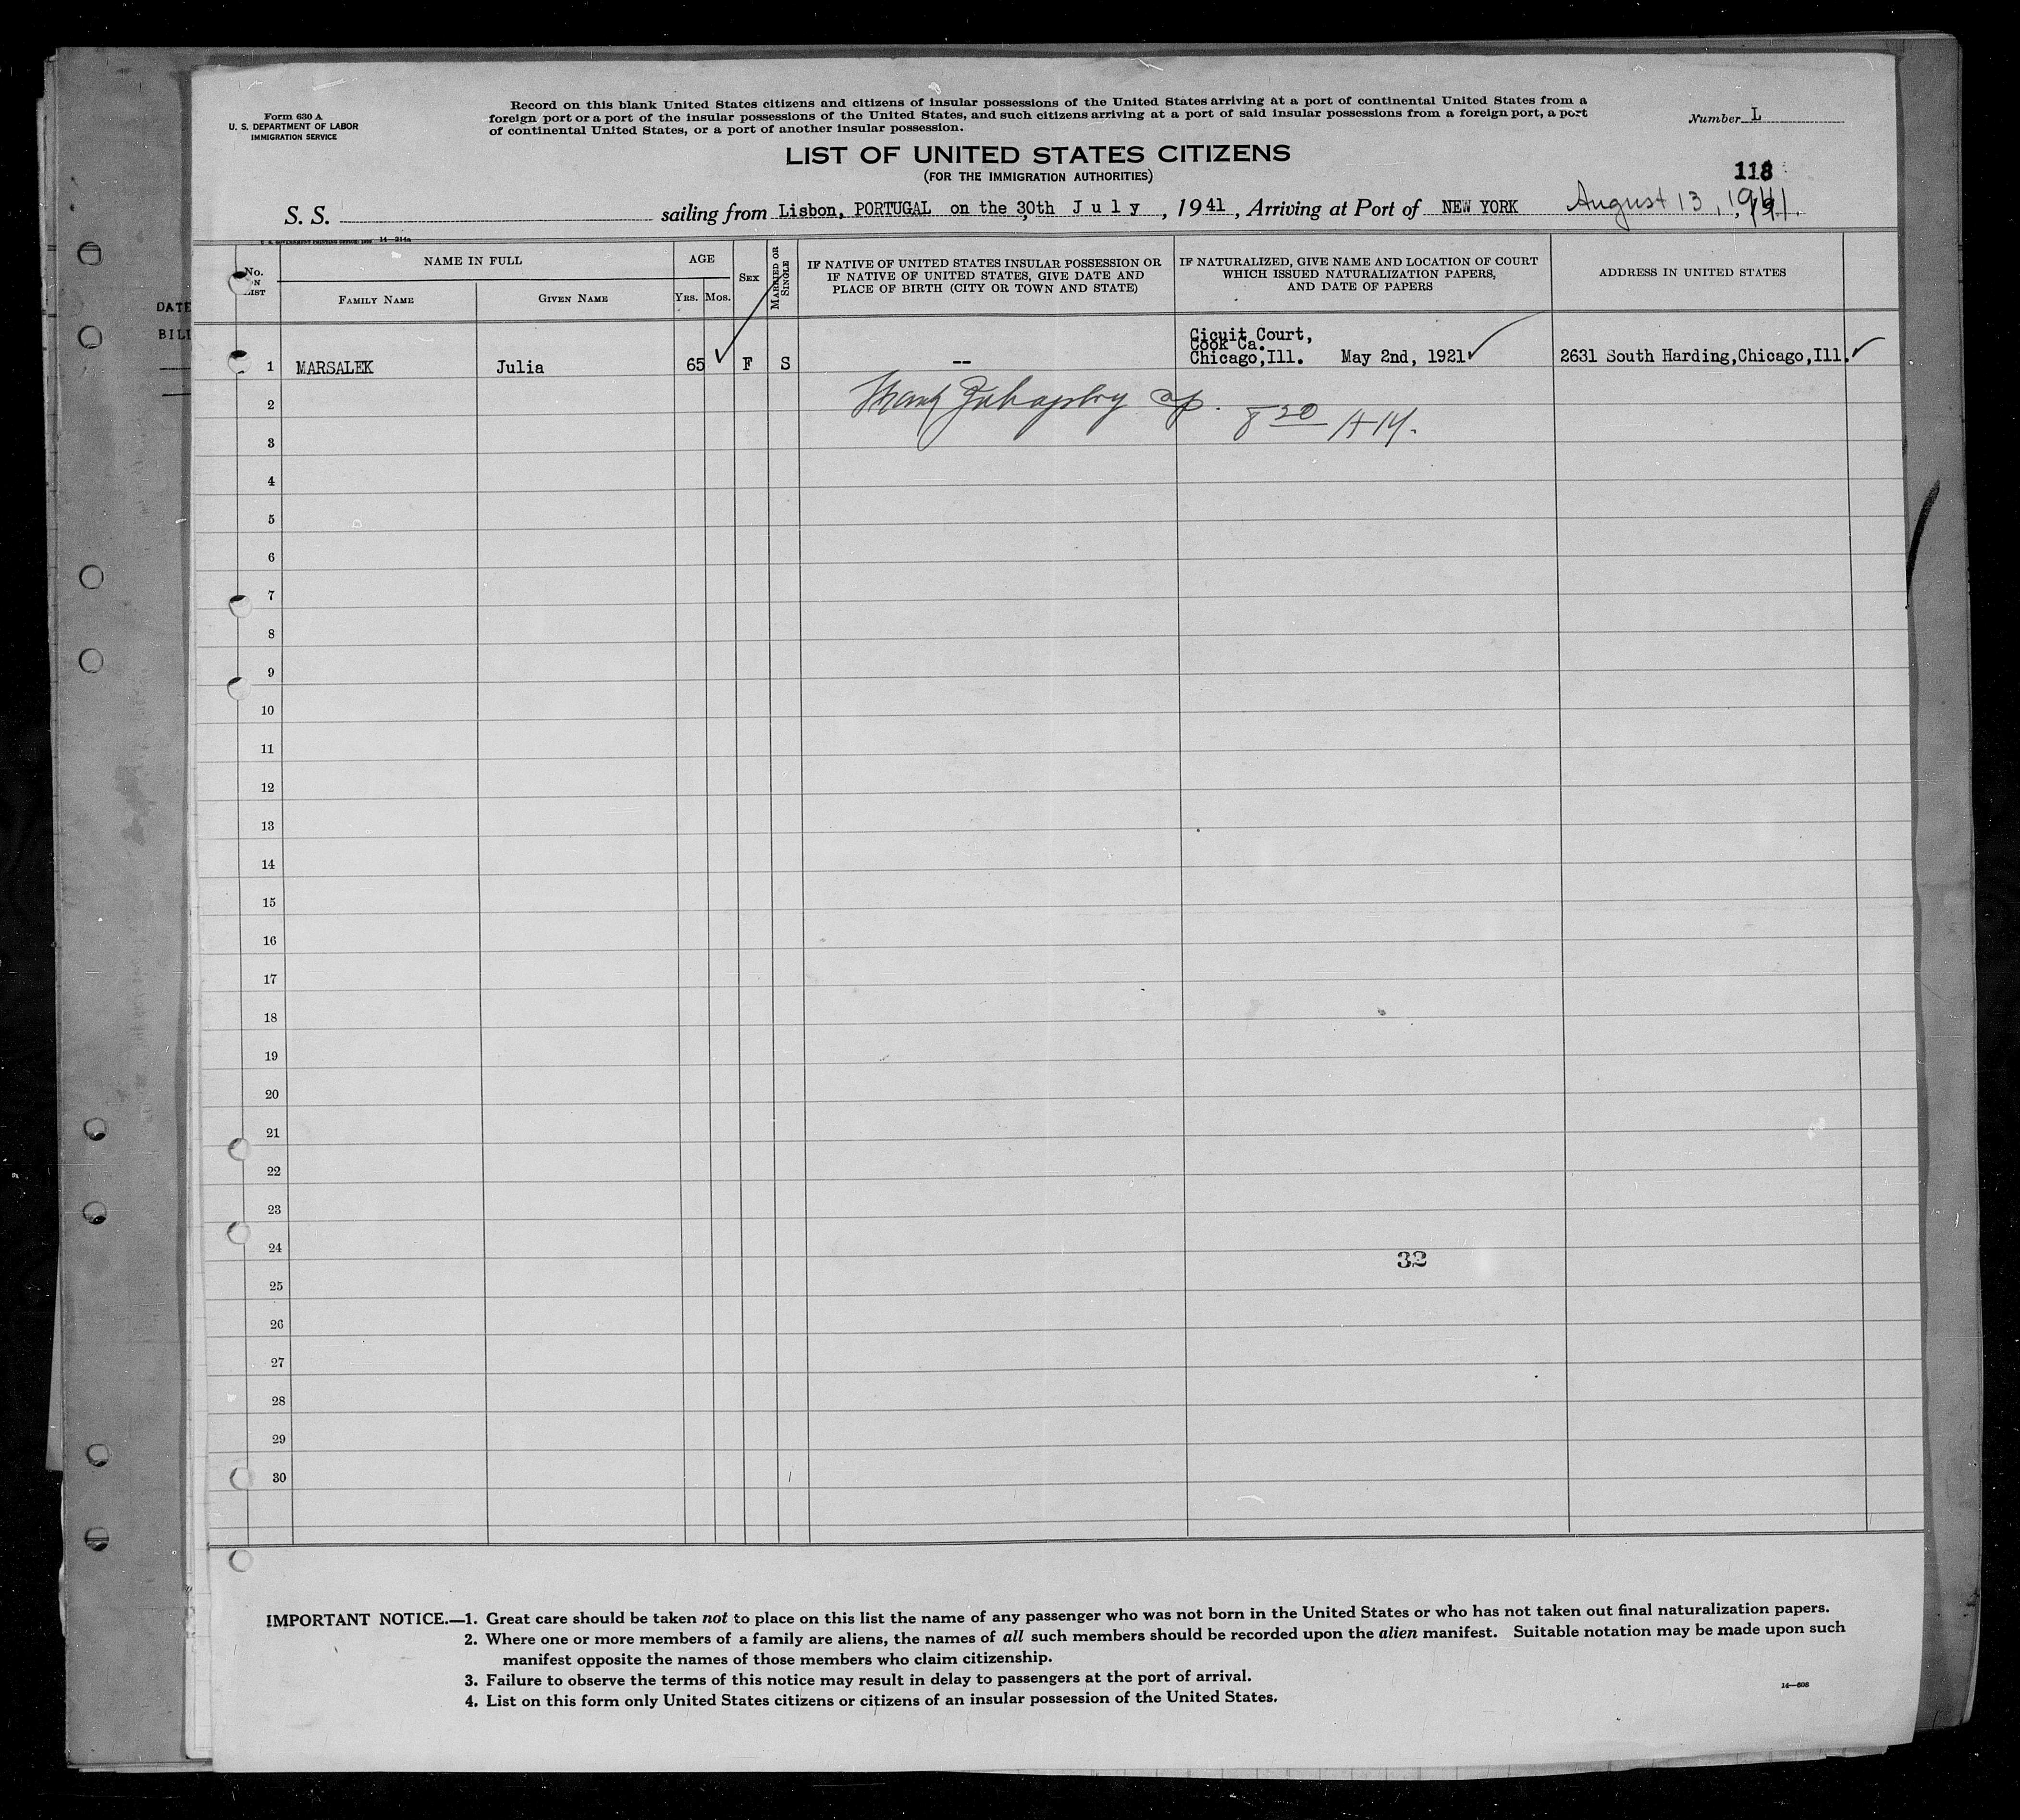 Form 630 A
U. S. DEPARTMENT OF LABOR
IMMIGRATION SERVICE
Record on this blank United States citizens and citizens of insular possessions of the United States arriving at a port of continental United States from a
foreign port or a port of the insular possessions of the United States, and such citizens arriving at a port of said insular possessions from a foreign port, a port
of continental United States, or a port of another insular possession.
Number L
LIST OF UNITED STATES CITIZENS
(FOR THE IMMIGRATION AUTHORITIES)
118
S. S. sailing from Lisbon, PORTUGAL on the 30th July, 1941, Arriving at Port of NEW YORK August 13, 1941.
14—214a
No. LIST
NAME IN FULL
FAMILY NAME
GIVEN NAME
AGE
YRS. MOS.
SEX
MARRIED OR SINGLE
IF NATIVE OF UNITED STATES INSULAR POSSESSION OR
IF NATIVE OF UNITED STATES, GIVE DATE AND
PLACE OF BIRTH (CITY OR TOWN AND STATE)
IF NATURALIZED, GIVE NAME AND LOCATION OF COURT
WHICH ISSUED NATURALIZATION PAPERS,
AND DATE OF PAPERS
ADDRESS IN UNITED STATES
DATE
BILL
Cicuit Court,
Cook Ca.
1 MARSALEK Julia 65 F S -- Chicago,Ill. May 2nd, 1921 2631 South Harding,Chicago,Ill.
2
8 20
3
4
5
6
7
8
9
10
11
12
13
14
15
16
17
18
19
20
21
22
23
24
32
25
26
27
28
29
30
IMPORTANT NOTICE.—1. Great care should be taken not to place on this list the name of any passenger who was not born in the United States or who has not taken out final naturalization papers.
2. Where one or more members of a family are aliens, the names of all such members should be recorded upon the alien manifest. Suitable notation may be made upon such
manifest opposite the names of those members who claim citizenship.
3. Failure to observe the terms of this notice may result in delay to passengers at the port of arrival.
4. List on this form only United States citizens or citizens of an insular possession of the United States.
14—608